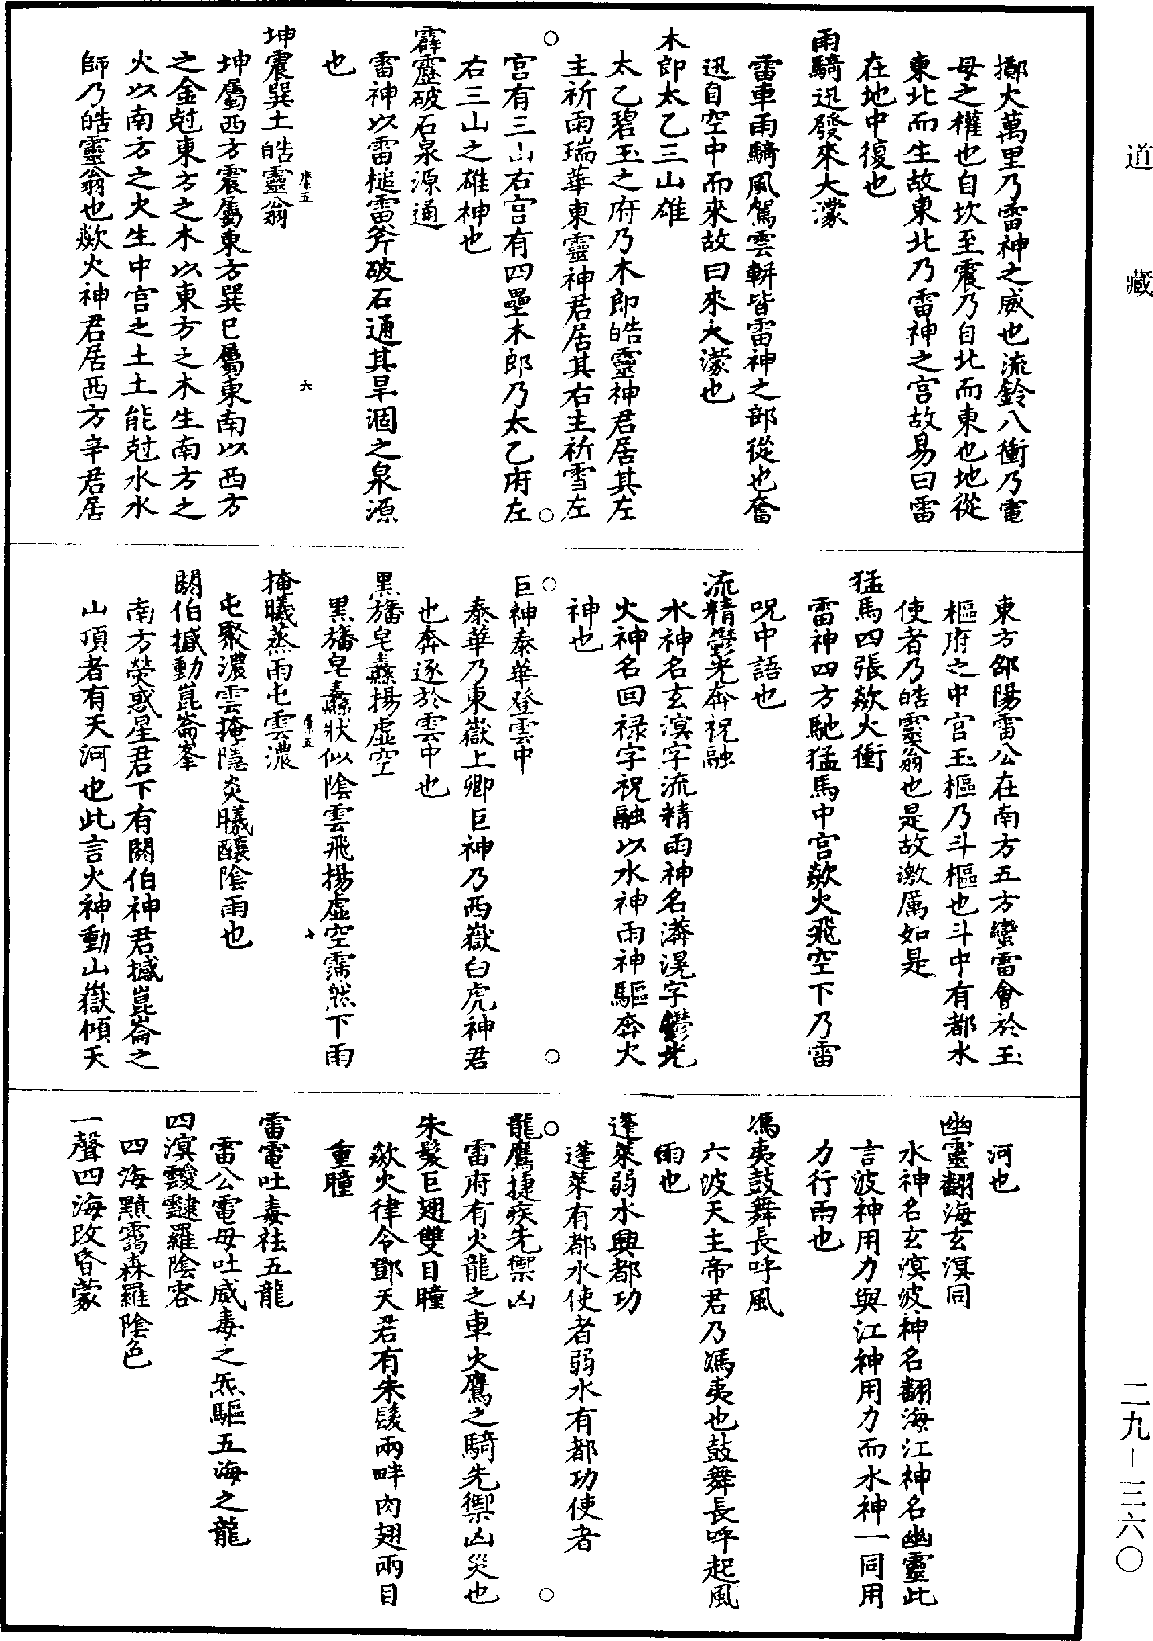 道藏
擲火萬里乃雷神之威也流鈴八衝乃電
母之權也自坎至震乃自北而東也地從
東北而生故東北乃雷神之宫故易曰雷
在地中復也
雨騎迅發來大濛
雷車雨騎風駕雲軿皆雷神之部從也奮
迅自空中而來故曰來大濛也
木郎太乙三山雄
太乙碧玉之府乃木郎皓靈神君居其左
主祈雨瑞華東靈神君居其右主祈雪左
宫有三山右宫有四壘木郎乃太乙府左
右三山之雄神也
霹靂破石泉源通
雷神以雷槌雷斧破石通其旱涸之泉源
也
六
坤震巽土皓靈翁
坤屬西方震屬東方巽巳屬東南以西方
之金尅東方之木以東方之木生南方之
火以南方之火生中宫之土土能尅水水
師乃皓靈翁也歘火神君居西方辛君居
東方郃陽雷公在南方五方蠻雷會於玉
樞府之中宫玉樞乃斗樞也斗中有都水
使者乃皓靈翁也是故激厲如是
猛馬四張歘火衝
雷神四方馳猛馬中宫歘火飛空下乃雷
咒中語也
流精鬱光奔祝融
水神名玄溟字流精雨神名漭滉字鬱光
火神名回禄字祝融以水神雨神驅奔火
神也
巨神泰華登雲中
泰華乃東嶽上卿巨神乃西嶽白虎神君
也奔逐於雲中也
黑旛皂纛揚虛空
黑旛皂纛狀似陰雲飛揚虛空霈然下雨
七
掩曦蒸雨屯雲濃
屯聚濃雲掩隱炎曦釀陰雨也
閼伯撼動崑崙峯
南方熒惑星君下有閼伯神君撼崑崙之
山頂者有天河也此言火神動山嶽傾天
河也
幽靈翻海玄溟同
水神名玄溟波神名翻海江神名幽靈此
言波神用力與江神用力而水神一同用
力行雨也
馮夷鼓舞長呼風
六波天主帝君乃馮夷也鼓舞長呼起風
雨也
蓬萊弱水興都功
蓬萊有都水使者弱水有都功使者
龍鷹捷疾先禦凶
雷府有火龍之車火鷹之騎先禦凶災也
朱髮巨翅雙目瞳
歘火律令鄧天君有朱髮兩畔肉翅兩目
重瞳
雷電吐毒袪五龍
雷公電母吐威毒之炁驅五海之龍
四溟靉靆羅陰容
四海黯靄森羅陰色
一聲四海改昏蒙
二九-三六〇